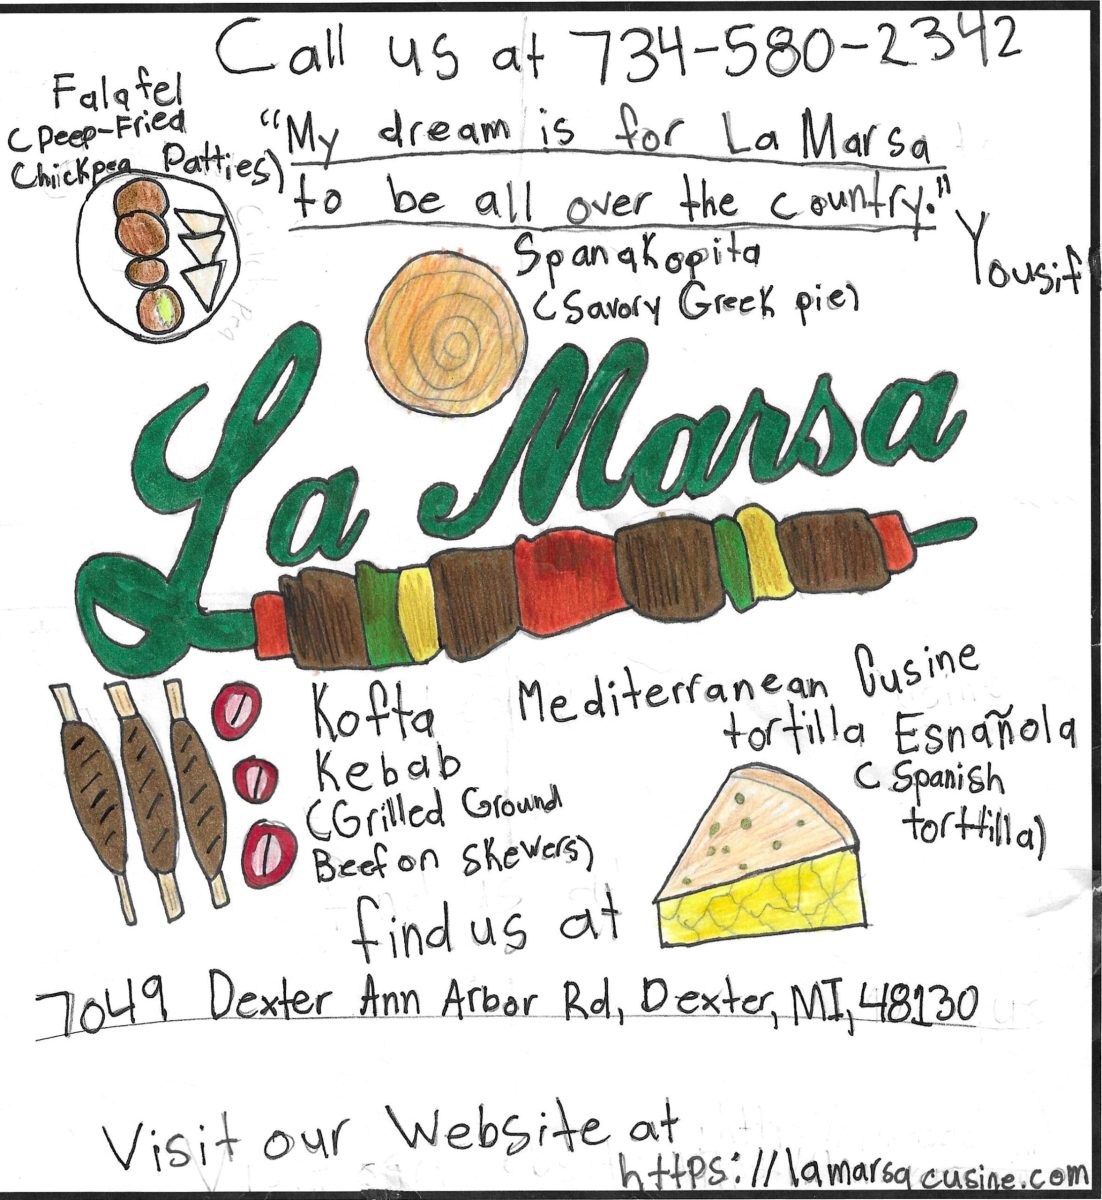 Call us at 734-580-2342
Falafel
(Deep-Fried
Chiickpea Patties)
"My dream is for La Marsa
to be all over the country."
Yousif
Spanakopita
(Savory Greek pie)
La Marsa
Kofta
Kebab
(Grilled Ground
Beef on skewers)
Mediterranean Cusine
tortilla Esnañola
(Spanish
torttilla)
find us at
7049 Dexter Ann Arbor Rd, Dexter, MI, 48130
Visit our Website at
https://lamarsacusine.com